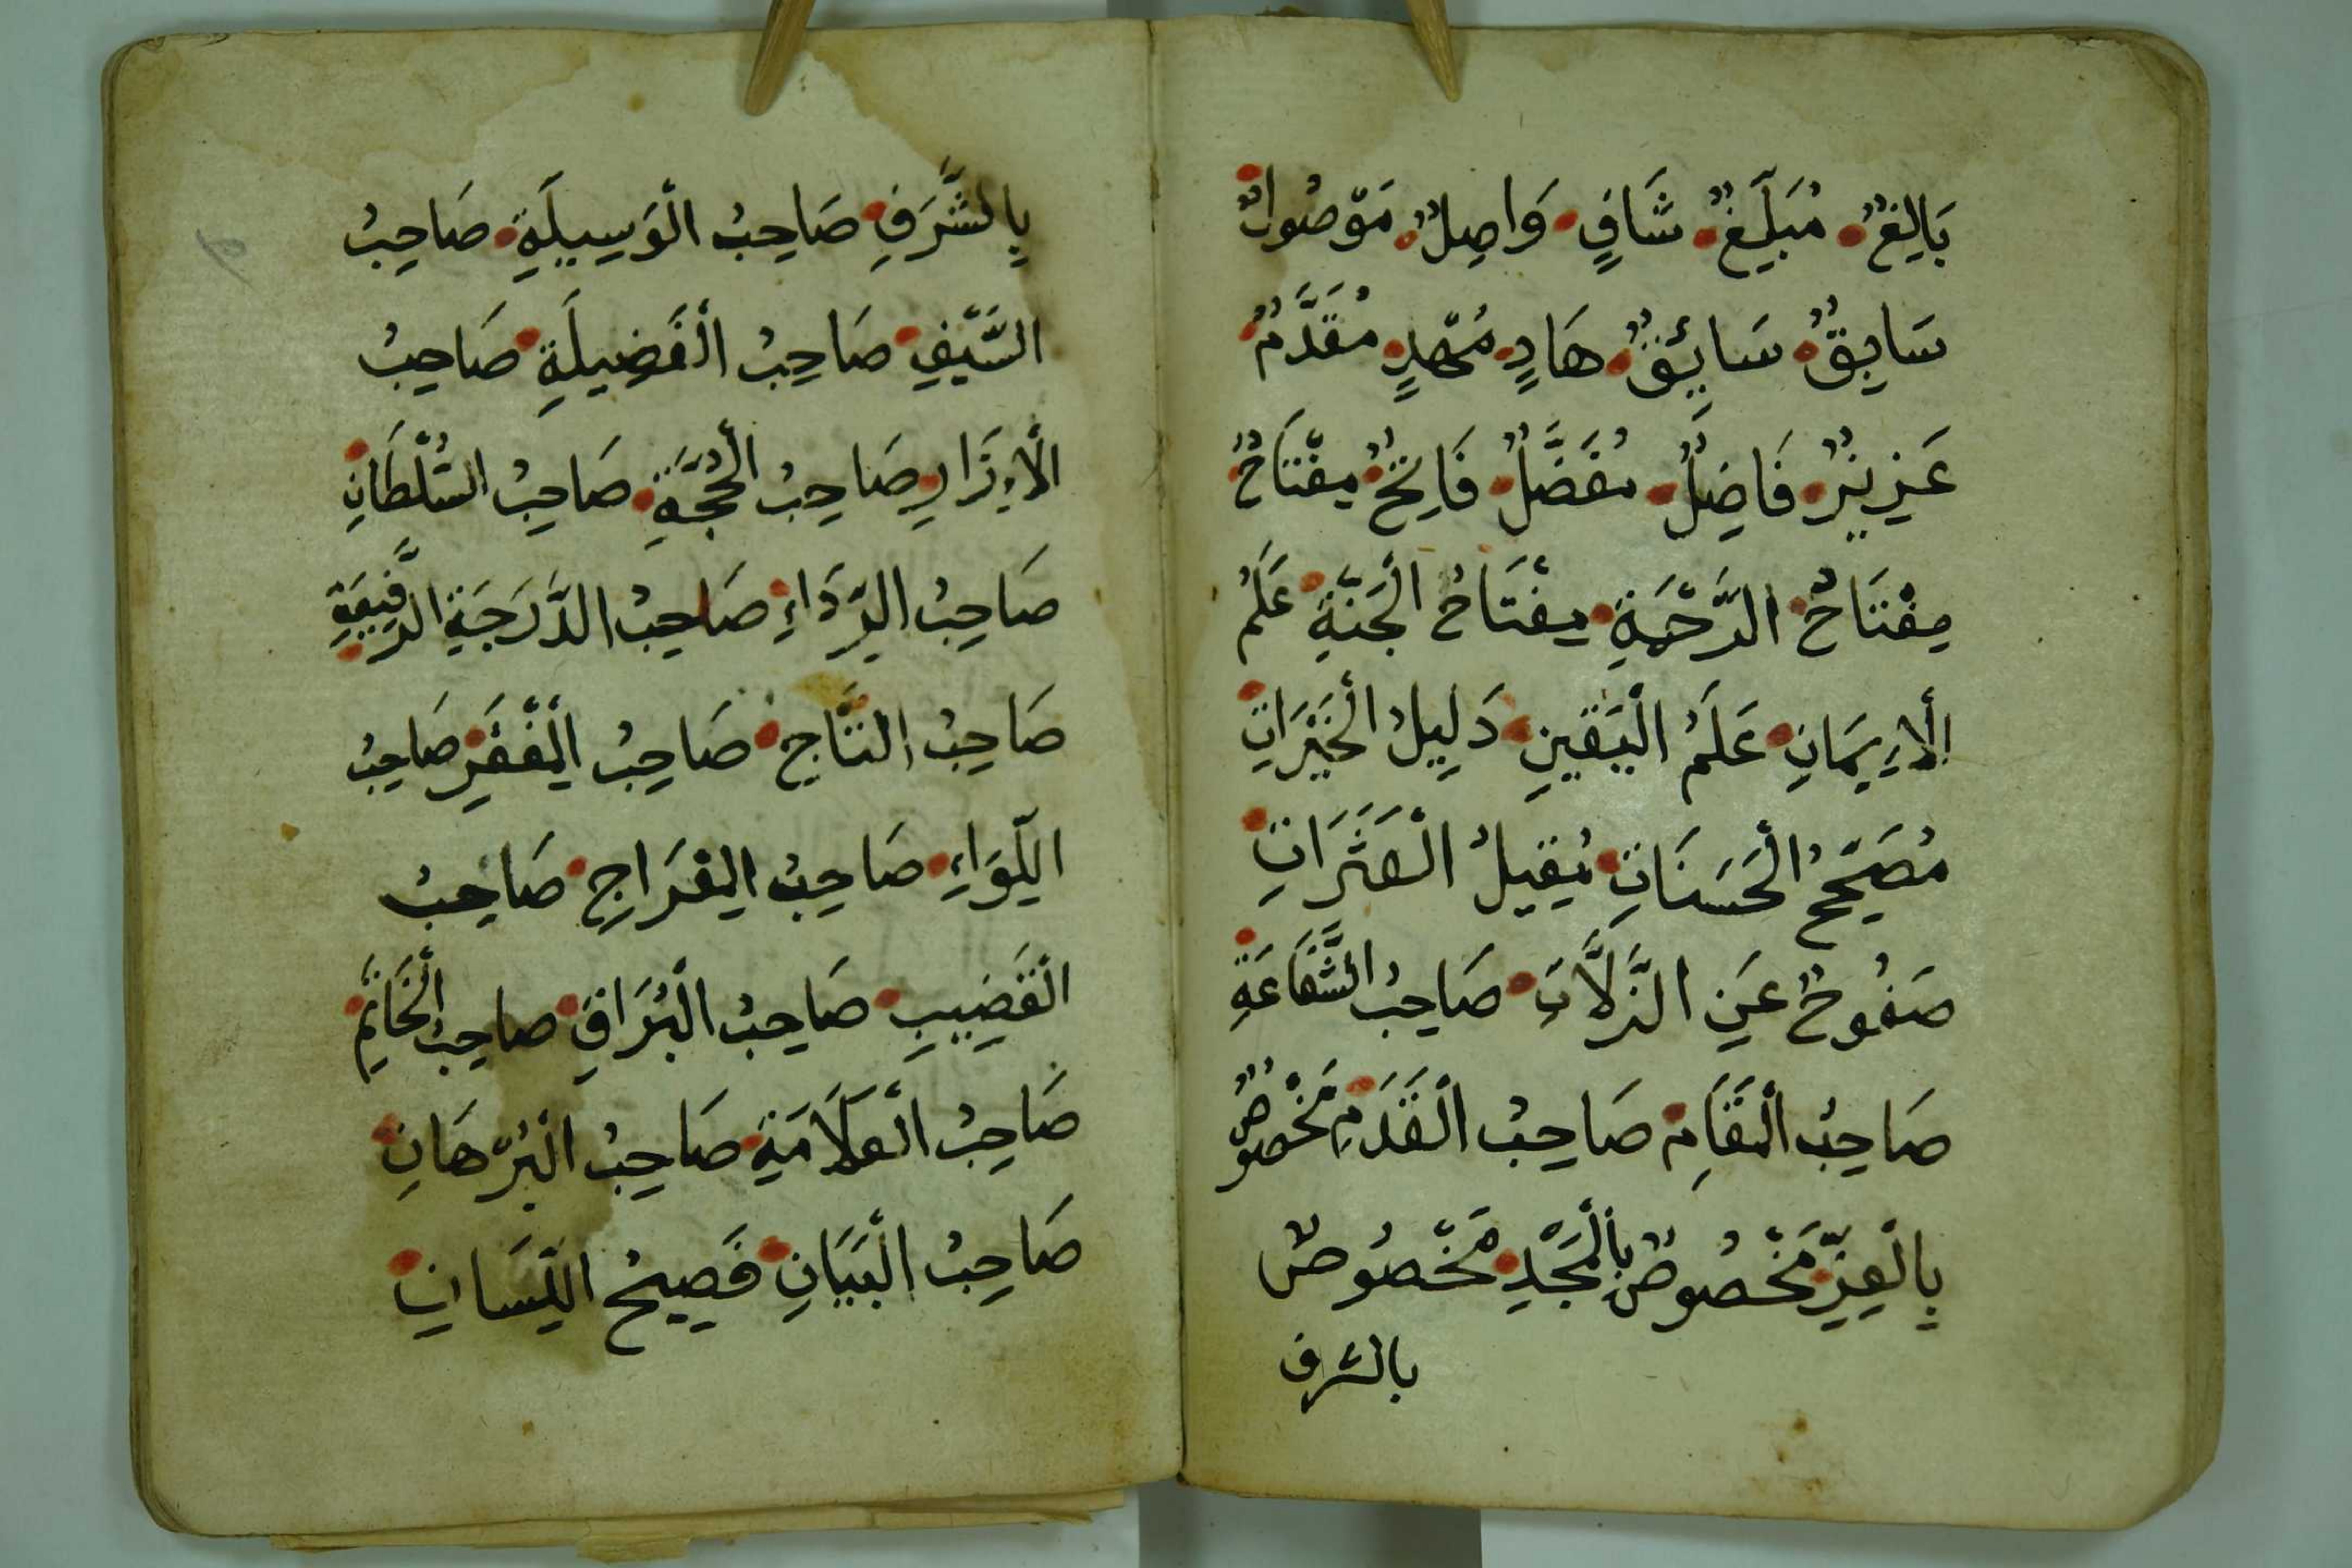 بَالِغٌ مُبَلِّغٌ شَافٍ وَاصِلٌ مَوْصُولٌ
سَابِقٌ سَائِقٌ هَادٍ مُهْدٍ مُقَدَّمٌ
عَزِيزٌ فَاضِلٌ مُفَضَّلٌ فَاتِحٌ مِفْتَاحٌ
مِفْتَاحُ الرَّحْمَةِ مِفْتَاحُ الْجَنَّةِ عَلَمُ
الْإِيمَانِ عَلَمُ الْيَقِينِ دَلِيلُ الْخَيْرَاتِ
مُصَحِّحُ الْحَسَنَاتِ مُقِيلُ الْعَثَرَاتِ
صَفُوحٌ عَنِ الزَّلَّاتِ صَاحِبُ الشَّفَاعَةِ
صَاحِبُ الْمَقَامِ صَاحِبُ الْقَدَمِ مَخْصُوصٌ
بِالْعِزِّ مَخْصُوصٌ بِالْمَجْدِ مَخْصُوصٌ
بالشرف
بِالشَّرَفِ صَاحِبُ الْوَسِيلَةِ صَاحِبُ
السَّيْفِ صَاحِبُ الْفَضِيلَةِ صَاحِبُ
الْإِزَارِ صَاحِبُ الْحُجَّةِ صَاحِبُ السُّلْطَانِ
صَاحِبُ الرِّدَاءِ صَاحِبُ الدَّرَجَةِ الرَّفِيعَةِ
صَاحِبُ التَّاجِ صَاحِبُ الْمِغْفَرِ صَاحِبُ
اللِّوَاءِ صَاحِبُ الْمِعْرَاجِ صَاحِبُ
الْقَضِيبِ صَاحِبُ الْبُرَاقِ صَاحِبُ الْخَاتِمِ
صَاحِبُ الْعَلَامَةِ صَاحِبُ الْبُرْهَانِ
صَاحِبُ الْبَيَانِ فَصِيحُ اللِّسَانِ